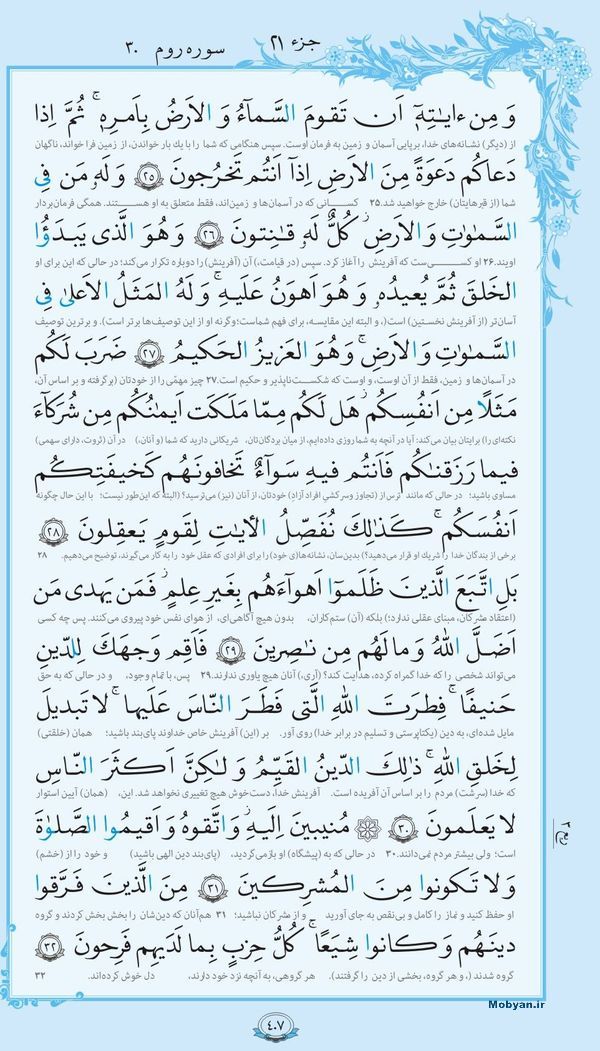 جزء ۲۱
سوره روم ۳۰
وَ مِن ءایٰتِهٖ اَن تَقومَ السَّماءُ وَ الاَرضُ بِاَمرِهٖ ۚ ثُمَّ اِذا
از (دیگر) نشانه‌های خدا، برپایی آسمان و زمین به فرمان اوست. سپس هنگامی که شما را با یك بار خواندن، از زمین فرا خواند، ناگهان
دَعاکُم دَعوَةً مِنَ الاَرضِ اِذآ اَنتُم تَخرُجونَ ﴿۲۵﴾ وَ لَهٗ مَن فِی
شما (از قبرهایتان) خارج خواهید شد.۲۵ کسانی که در آسمان‌ها و زمین‌اند، فقط متعلق به او هستند. همگی فرمان‌بردار
السَّمٰوٰتِ وَ الاَرضِ ۖ کُلٌّ لَهٗ قٰنِتونَ ﴿۲۶﴾ وَ هُوَ الَّذی یَبدَؤُا
اویند.۲۶ او کسی‌ست که آفرینش را آغاز کرد. سپس (در قیامت)، آن (آفرینش) را دوباره تکرار می‌کند؛ در حالی که این برای او
الخَلقَ ثُمَّ یُعیدُهٗ وَ هُوَ اَهوَنُ عَلَیهِ ۚ وَ لَهُ المَثَلُ الاَعلیٰ فِی
آسان‌تر (از آفرینش نخستین) است(، و البته این مقایسه، برای فهم شماست؛ وگرنه او از این توصیف‌ها برتر است). و برترین توصیف
السَّمٰوٰتِ وَ الاَرضِ ۚ وَ هُوَ العَزیزُ الحَکیمُ ﴿۲۷﴾ ضَرَبَ لَکُم
در آسمان‌ها و زمین، فقط از آن اوست، و اوست که شکست‌ناپذیر و حکیم است.۲۷ چیز مهمّی را از خودتان (برگرفته و بر اساس آن،
مَثَلًا مِن اَنفُسِکُم ۖ هَل لَکُم مِمّا مَلَکَت اَیمٰنُکُم مِن شُرَکآءَ
نکته‌ای را) برایتان بیان می‌کند: آیا در آنچه به شما روزی داده‌ایم، از میان بردگان‌تان، شریکانی دارید که شما (و آنان،) در آن (ثروت، دارای سهمی)
فیما رَزَقنٰکُم فَاَنتُم فیهِ سَوآءٌ تَخافونَهُم کَخیفَتِکُم
مساوی باشید؛ در حالی که مانند ترس از (تجاوز و سرکشیِ افراد آزادِ) خودتان، از آنان (نیز) می‌ترسید؟ (البته که این‌طور نیست؛ با این حال چگونه
اَنفُسَکُم ۚ کَذٰلِكَ نُفَصِّلُ الاٰیٰتِ لِقَومٍ یَعقِلونَ ﴿۲۸﴾
برخی از بندگان خدا را شریك او قرار می‌دهید؟) بدین‌سان، نشانه‌ها(ی خود) را برای افرادی که عقل خود را به کار می‌گیرند، توضیح می‌دهیم. ۲۸
بَلِ اتَّبَعَ الَّذینَ ظَلَموٓا اَهوآءَهُم بِغَیرِ عِلمٍ ۖ فَمَن یَهدی مَن
(اعتقاد مشرکان، مبنای عقلی ندارد؛) بلکه (آن) ستم‌کاران، بدون هیچ آگاهی‌ای، از هوای نفس خود پیروی می‌کنند. پس چه کسی
اَضَلَّ اللهُ ۖ وَ ما لَهُم مِن نٰصِرینَ ﴿۲۹﴾ فَاَقِم وَجهَكَ لِلدّینِ
می‌تواند شخصی را که خدا گمراه کرده، هدایت کند؟ (آری،) آنان هیچ یاوری ندارند.۲۹ پس، با تمام وجود، و در حالی که به حق
حَنیفًا ۚ فِطرَتَ اللهِ الَّتی فَطَرَ النّاسَ عَلَیها ۚ لا تَبدیلَ
مایل شده‌ای، به دین (یکتاپرستی و تسلیم در برابر خدا) روی آور. بر (این) آفرینش خاص خداوند پای‌بند باشید؛ همان (خلقتی)
لِخَلقِ اللهِ ۚ ذٰلِكَ الدّینُ القَیِّمُ وَ لٰکِنَّ اَکثَرَ النّاسِ
که خدا (سرشت) مردم را بر اساس آن آفریده است. آفرینش خدا، دست‌خوش هیچ تغییری نخواهد شد. این، (همان) آیین استوار
لا یَعلَمونَ ﴿۳۰﴾ مُنیبینَ اِلَیهِ وَ اتَّقوهُ وَ اَقیمُوا الصَّلوٰةَ
است؛ ولی بیشتر مردم نمی‌دانند.۳۰ در حالی که به (پیشگاه) او بازمی‌گردید، (پای‌بند دین الهی باشید) و خود را از (خشم)
وَ لا تَکونوا مِنَ المُشرِکینَ ﴿۳۱﴾ مِنَ الَّذینَ فَرَّقوا
او حفظ کنید و نماز را کامل و بی‌نقص به جای آورید و از مشرکان نباشید؛ ۳۱ هم‌آنان که دین‌شان را بخش بخش کردند و گروه
دینَهُم وَ کانوا شِیَعًا ۖ کُلُّ حِزبٍ بِما لَدَیهِم فَرِحونَ ﴿۳۲﴾
گروه شدند (، و هر گروه، بخشی از دین را گرفتند). هر گروهی، به آنچه نزد خود دارند، دل خوش کرده‌اند. ۳۲
Mobyan.ir
۴۰۷